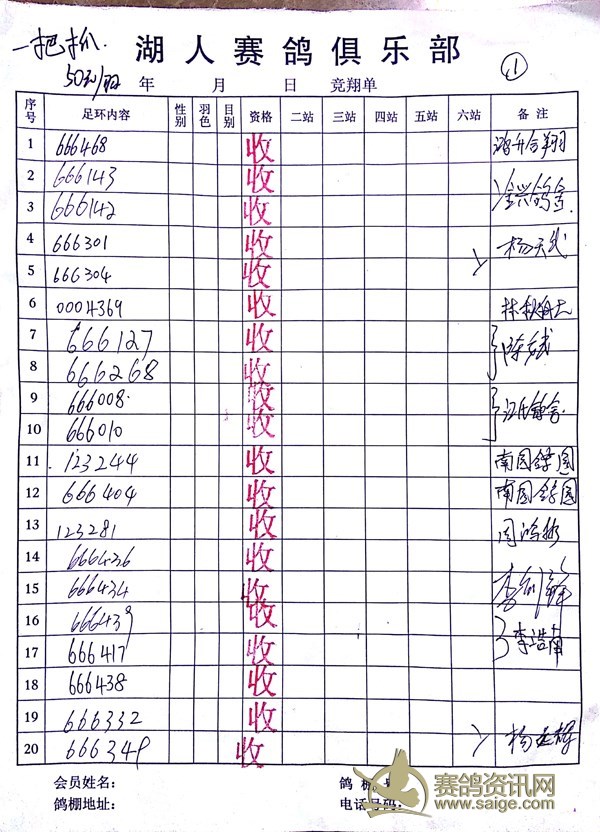 一把抓.
湖人赛鸽俱乐部
50元/羽 年 月 日 竞翔单
序号 足环内容 性别 羽色 目别 资格 二站 三站 四站 五站 六站 备注
1 666468 收
2 666143 收
3 666142 收
4 666301 收
5 666304 收
6 0004369 收
7 666127 收
8 666268 收
9 666008 收
10 666010 收
11 123244 收 南国
12 666404 收 南国
13 123281 收
14 666436 收
15 666434 收
16 666439 收
17 666417 收 李浩南
18 666438 收
19 666332 收
20 666349 收
会员姓名: 鸽棚
鸽棚地址: 电话号码:
赛鸽资讯网
www.saige.com